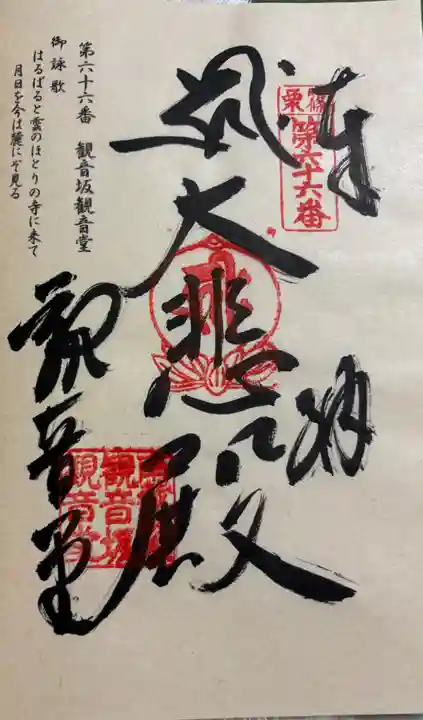 奉納
篠栗
第六十六番
大悲殿
観音堂
観音坂
観音堂
第六十六番 観音坂観音堂
御詠歌
はるばると雲のほとりの寺に来て
月日を今は麓にぞ見る